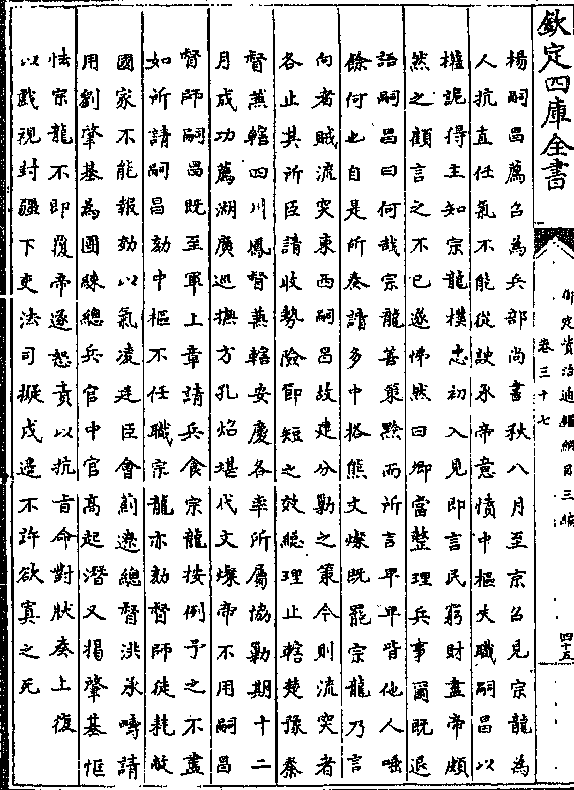 欽定四庫全書
御定資治通鑑綱目三編
卷三十七
四十五
楊嗣昌薦召為兵部尚書秋八月至京召見宗龍為
人抗直任氣不能從諛承帝意憤中樞失職嗣昌以
權詭得主知宗龍樸忠初入見即言民窮財盡帝頗
然之顧言之不已遂怫然曰卿當整理兵事爾既退
語嗣昌曰何哉宗龍善策黔而所言卑卑皆他人唾
餘何也自是所奏請多中格熊文燦既罷宗龍乃言
向者賊流突東西嗣昌故建分勦之策今則流突者
各止其所臣請收勢險節短之效總理止轄楚豫秦
督兼轄四川鳳督兼轄安慶各率所屬協勦期十二
月成功薦湖廣巡撫方孔炤堪代文燦帝不用嗣昌
督師嗣昌既至軍上章請兵食宗龍按例予之不盡
如所請嗣昌劾中樞不任職宗龍亦劾督師徒耗敝
國家不能報効以氣凌廷臣會薊遼總督洪承疇請
用劉肇基為團練總兵官中官高起潛又揭肇基恇
怯宗龍不即覆帝遂怒責以抗旨命對狀奏上復
以戲視封疆下吏法司擬戍邊不許欲寘之死